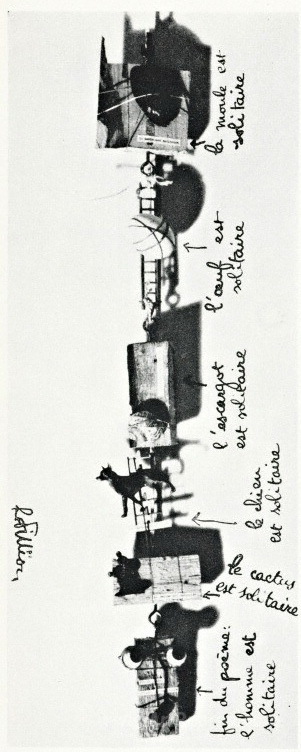 la moule est
solitaire
l'œuf est
solitaire
l'escargot
est solitaire
le chien
est solitaire
le cactus
est solitaire
fin du poème:
l'homme est
solitaire